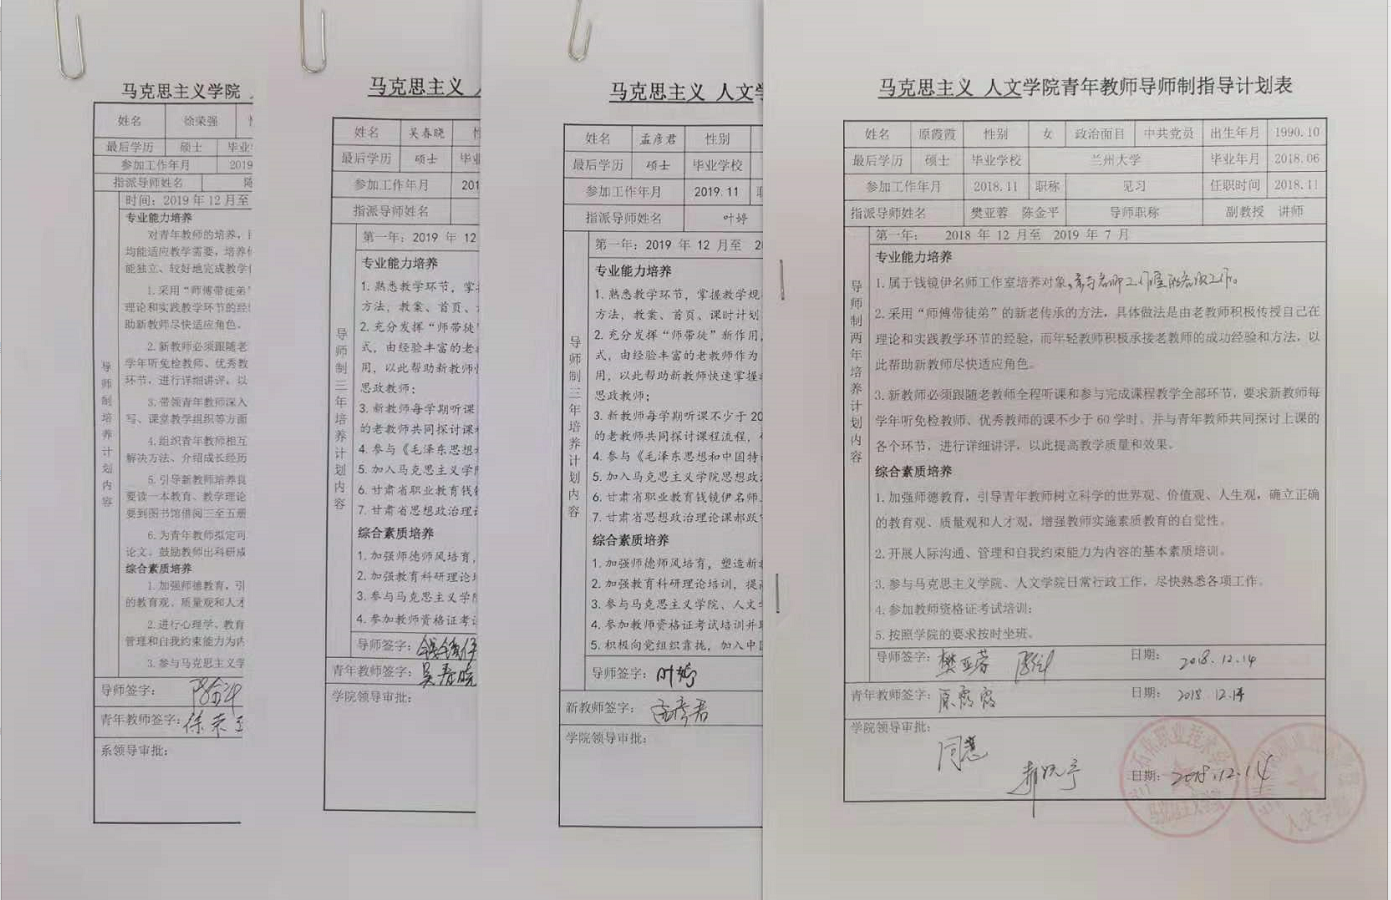 马克思主义学院
姓名 徐荣强
最后学历 硕士
参加工作年月 2019
指派导师姓名
时间: 2019 年 12 月至
专业能力培养
对青年教师的培养,
均能适应教学需要, 培养
能独立、较好地完成教学
1. 采用“师傅带徒弟”
理论和实践教学环节的经
助新教师尽快适应角色。
2. 新教师必须跟随老
学年听免检教师、优秀教
环节, 进行详细讲评, 以
3. 带领青年教师深入
写、课堂教学组织等方面
4. 组织青年教师相互
解决方法、介绍成长经历
5. 引导新教师培养良
要读一本教育、教学理论
要到图书馆借阅三至五册
6. 为青年教师拟定可
论文。鼓励教师出科研成
综合素质培养
1. 加强师德教育, 引
的教育观、质量观和人才
2. 进行心理学、教育
管理和自我约束能力为内
3. 参与马克思主义学
导师制培养计划内容
导师签字:
青年教师签字: 徐荣
系领导审批:
马克思主义 人
姓名 吴春晓
最后学历 硕士 毕业
参加工作年月 201
指派导师姓名
第一年: 2019 年 12
专业能力培养
1. 熟悉教学环节, 掌
方法, 教案、首页、
2. 充分发挥“师带徒”
式, 由经验丰富的老
用, 以此帮助新教师
思政教师;
3. 新教师每学期听课
的老教师共同探讨课
4. 参与《毛泽东思想
5. 加入马克思主义学
6. 甘肃省职业教育钱
7. 甘肃省思想政治理
综合素质培养
1. 加强师德师风培育,
2. 加强教育科研理论
3. 参与马克思主义学
4. 参加教师资格证考
导师制三年培养计划内容
导师签字: 钱镜伊
青年教师签字: 吴春晓
学院领导审批:
马克思主义 人文学
姓名 孟彦君 性别
最后学历 硕士 毕业学校
参加工作年月 2019.11
指派导师姓名 叶婷
第一年: 2019 年 12 月至 20
专业能力培养
1. 熟悉教学环节, 掌握教学规
方法, 教案、首页、课时计划
2. 充分发挥“师带徒”新作用,
式, 由经验丰富的老教师作为
用, 以此帮助新教师快速掌握
思政教师;
3. 新教师每学期听课不少于 20
的老教师共同探讨课程流程,
4. 参与《毛泽东思想和中国特
5. 加入马克思主义学院思想政
6. 甘肃省职业教育钱镜伊名师
7. 甘肃省思想政治理论课郝跃
综合素质培养
1. 加强师德师风培育, 塑造新
2. 加强教育科研理论培训, 提
3. 参与马克思主义学院、人文
4. 参加教师资格证考试培训并
5. 积极向党组织靠拢, 加入中
导师制三年培养计划内容
导师签字: 叶婷
新教师签字: 孟彦君
学院领导审批:
马克思主义 人文学院青年教师导师制指导计划表
姓名 原霞霞 性别 女 政治面目 中共党员 出生年月 1990.10
最后学历 硕士 毕业学校 兰州大学 毕业年月 2018.06
参加工作年月 2018.11 职称 见习 任职时间 2018.11
指派导师姓名 樊亚蓉 陈金平 导师职称 副教授 讲师
第一年: 2018 年 12 月至 2019 年 7 月
专业能力培养
1. 属于钱镜伊名师工作室培养对象,
2. 采用“师傅带徒弟”的新老传承的方法, 具体做法是由老教师积极传授自己在
理论和实践教学环节的经验, 而年轻教师积极承接老教师的成功经验和方法, 以
此帮助新教师尽快适应角色。
3. 新教师必须跟随老教师全程听课和参与完成课程教学全部环节, 要求新教师每
学年听免检教师、优秀教师的课不少于 60 学时。并与青年教师共同探讨上课的
各个环节, 进行详细讲评, 以此提高教学质量和效果。
综合素质培养
1. 加强师德教育, 引导青年教师树立科学的世界观、价值观、人生观, 确立正确
的教育观、质量观和人才观, 增强教师实施素质教育的自觉性。
2. 开展人际沟通、管理和自我约束能力为内容的基本素质培训。
3. 参与马克思主义学院、人文学院日常行政工作, 尽快熟悉各项工作。
4. 参加教师资格证考试培训;
5. 按照学院的要求按时坐班。
导师制两年培养计划内容
导师签字: 樊亚蓉 日期: 2018.12.14
青年教师签字: 原霞霞 日期: 2018.12.14
学院领导审批:
同意
日期: 2018.12.14
马克思主义学院
人文学院